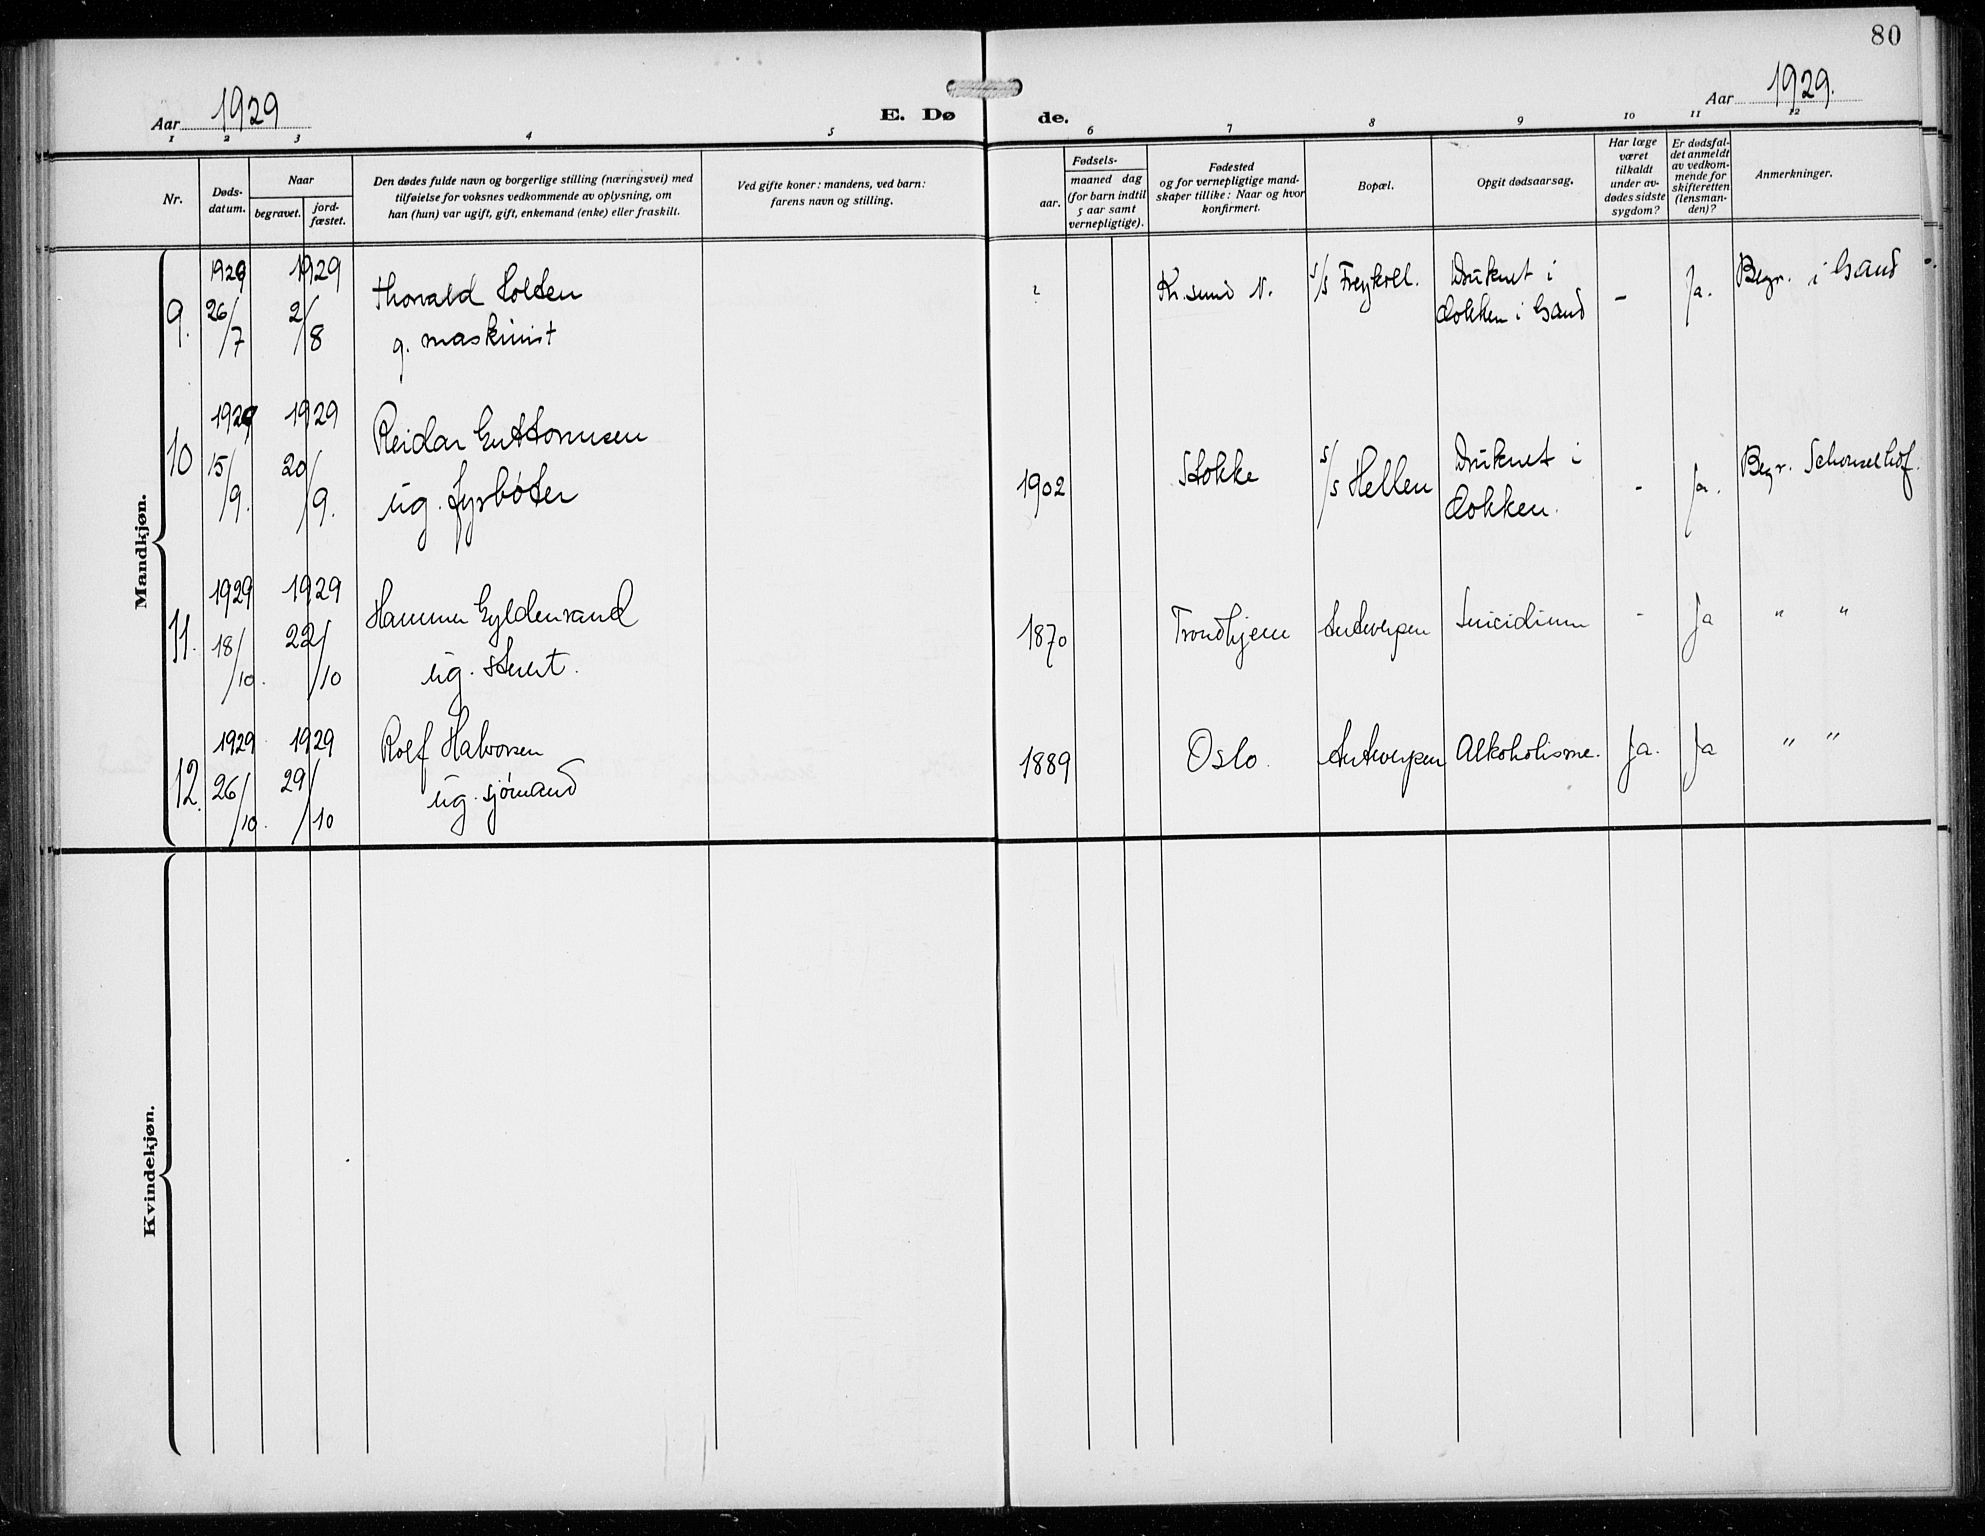 80
Aar 1929
E. Dø
de.
Aar 1929.
1 2 3 4 5 6 7 8 9 10 11 12
Nr.
Døds-
datum.
Naar
begravet.
jord-
fæstet.
Den dødes fulde navn og borgerlige stilling (næringsvei) med
tilføielse for voksnes vedkommende av oplysning, om
han (hun) var ugift, gift, enkemand (enke) eller fraskilt.
Ved gifte koner: mandens, ved barn:
farens navn og stilling.
Fødsels-
aar.
maaned dag
(for barn indtil
5 aar samt
vernepligtige).
Fødested
og for vernepligtige mand-
skaper tillike: Naar og hvor
konfirmert.
Bopæl.
Opgit dødsaarsag.
Har læge
været
tilkaldt
under av-
dødes sidste
sygdom?
Er dødsfal-
det anmeldt
av vedkom-
mende for
skifteretten
(lensman-
den)?
Anmerkninger.
Mandkjøn.
9. 1929 26/7 1929 2/8
Thorvald Holten
g. maskinist
?
Kr.sund N.
s/s Freykoll.
Druknet i
dokken i Gand
-
Ja.
Begr. i Gand
10 1929 15/9. 1929 20/9.
Reidar Guttormsen
ug. fyrbøter
1902
Stokke
s/s Hellen
Druknet i
dokken.
-
Ja.
Begr. Schoonselhof.
11. 1929 18/10. 1929 22/10
Hammer Gyldenvand
ug. stuert.
1870
Trondhjem
Antwerpen
Suicidium
-
Ja
" "
12. 1929 26/10. 1929 29/10
Rolf Halvorsen
ug. sjømand
1889
Oslo.
Antwerpen
Alkoholisme.
Ja.
Ja
" "
Kvindekjøn.